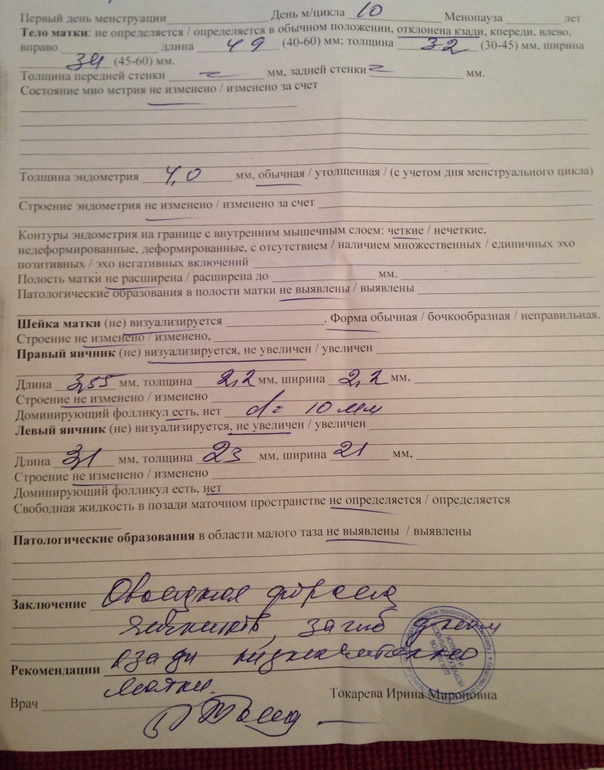 Первый день менструации День м/цикла 10 Менопауза лет
Тело матки: не определяется / определяется в обычном положении, отклонена кзади, кпереди, влево,
вправо длина 49 (40-60) мм; толщина 32 (30-45) мм, ширина
34 (45-60) мм.
Толщина передней стенки мм, задней стенки мм.
Состояние мио метрия не изменено / изменено за счет
Толщина эндометрия 4,0 мм, обычная / утолщенная / (с учетом дня менструального цикла)
Строение эндометрия не изменено / изменено за счет
Контуры эндометрия на границе с внутренним мышечным слоем: четкие / нечеткие,
недеформированные, деформированные, с отсутствием / наличием множественных / единичных эхо
позитивных / эхо негативных включений
Полость матки не расширена / расширена до мм.
Патологические образования в полости матки не выявлены / выявлены
Шейка матки (не) визуализируется . Форма обычная / бочкообразная / неправильная.
Строение не изменено / изменено,
Правый яичник (не) визуализируется, не увеличен / увеличен
Длина 3,55 мм, толщина 2,2 мм, ширина 2,2 мм,
Строение не изменено / изменено
Доминирующий фолликул есть, нет d= 10 мм
Левый яичник (не) визуализируется, не увеличен / увеличен
Длина 31 мм, толщина 23 мм, ширина 21 мм,
Строение не изменено / изменено
Доминирующий фолликул есть, нет
Свободная жидкость в позади маточном пространстве не определяется / определяется
Патологические образования в области малого таза не выявлены / выявлены
Заключение Овоидная форма
яичников, загиб
Рекомендации кзади
матки.
Врач Токарева Ирина Мироновна